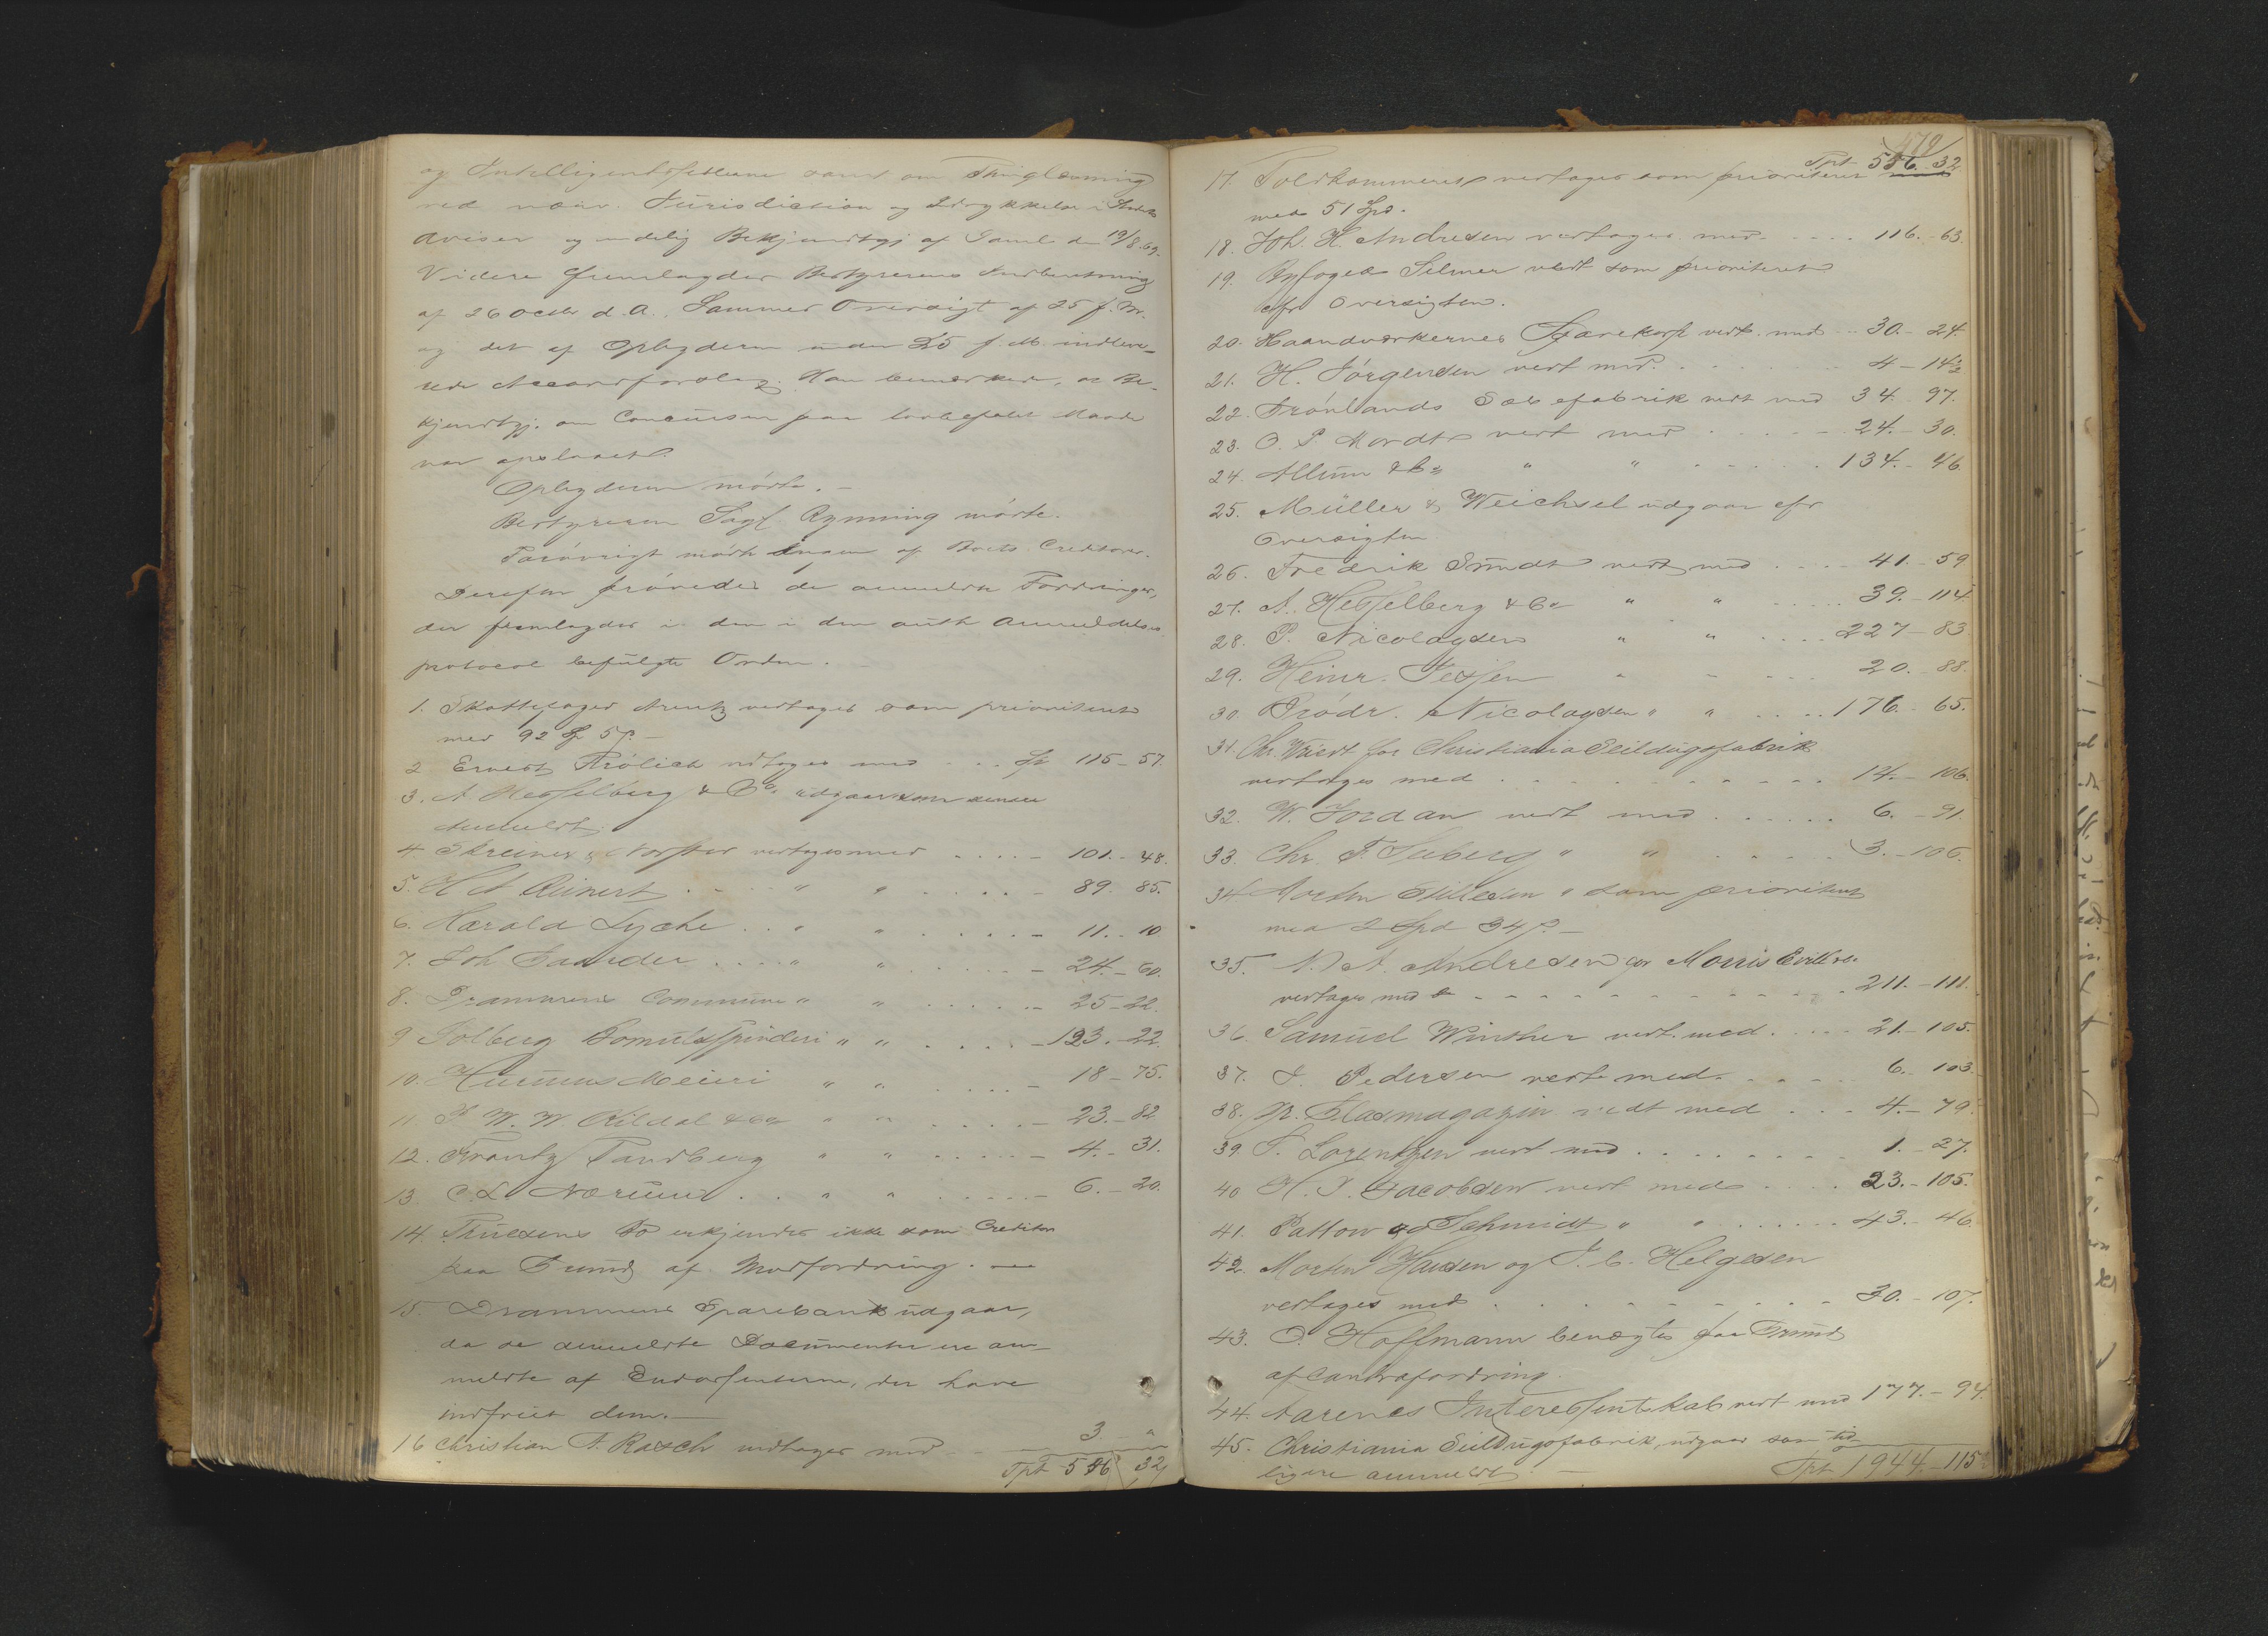 og Intelligentssedlerne samt om Thinglæsning
ved vedk. Jurisdiction og Indrykkelse i Stedets
Aviser og endelig Bekjendtgj. af Saml. den 19/8.69.
Videre fremlagdes Bestyrerens Indberetning
af 26 Octbr d. A., Sammes Oversigt af 25 f. M.
og det af Opbyderen under 25 f. M. indleve-
rede Accordforslag. Han bemærkede, at Be-
kjendtgj. om Concursen paa lovbefalet Maade
var opslaaet.
Opbyderen mødte. -
Bestyreren Sagf. Rynning mødte.
Forøvrigt mødte Ingen af Boets Creditorer.
Derefter prøvedes de anmeldte Fordringer,
der fremlagdes i den i den auth. Anmeldelses-
protocol befulgte Orden.
1. Skattefoged Arentz vedtages som prioriteret
med 92 Sp 5 ß. -
2 Ernest Frölich vedtages med . . . Sp 115 - 57.
3. A Hesselberg & Co. udgaar som senere
Anmeldt.
4 Skreiner & Norstad vedtages med . . . . - 101. - 48.
5. H A Reinert . . . " " . . . . - 89. 85.
6. Harald Lyche . . " " . . . . - 11. - 10
7. Joh. . . . " " . . . . - 24. - 60.
8. Drammens Commune " " . . . . - 25 - 22.
9 Solberg Bomuldsspinderi " " . . . . - 123. - 22.
10. Meieri " " . . . . - 18 - 75.
11. P W. W. Kildal & Co " " . . . . - 23. - 82
12. Frantz Tandberg " " . . . . - 4. - 31.
13. C. L. Nærum . . " " . . . . - 6. - 20.
14. Truelsens Bo erkjendes ikke som Creditor
paa Grund af Modfordring. -
15. Drammens Sparebank udgaar,
da de anmeldte Documenter ere an-
meldte af Endorsenterne, der have
indfriet dem. -
16 Christian A. Rasch vedtages med - - 3 - "
Tpt 556 32
479
Tpt 556 - 32.
17. Toldkammeret vedtages som prioriteret
med 51 Spd.
18. Joh. H. Andresen vedtages med . . . . 116. - 63.
19. Byfoged Selmer vedt som prioriteret
efter Oversigten.
20. Haandværkernes vedt. med - 30. - 24.
21. H. Jörgensen vedt med . . . . . . 4 - 14½
22. Grönlands Sæbefabrik vedt med 34. 97.
23. O. P. Mordt vedt med . . . . - 24. - 30.
24. Allum & Co " " . . . . . 134. - 46.
25. Müller & Weichsel udgaar efter
Oversigten
26. Fredrik Smidt vedt med . . . . 41. - 59
27. A. Hesselberg & Co " " . . . . 39. - 114
28. P. Nicolaysen " " . . . . 227 - 83
29. Heinr. Jessen " " . . . 20. - 88.
30. Brödr. Nicolaysen " " . . . . 176. - 65.
31. Chr. Wriedt for Christiania Seildugsfabrik
vedtages med . . . . . . . . . . 14. - 106.
32. W. Jordan vedt med . . . . . . 6. - 91.
33. Chr. F. " " . . . . . . 3. - 106.
34 Morten " som prioriteret
med 2 Spd 34 ß. -
35. N. A. Andresen for Morris Evill
vedtages med - - - - - - - - - . 211. - 111.
36. Samuel Winther vedt. med . . . . 21. - 105.
37. J. Pedersen vedt. med . . . . . 6. - 103.
38. Glasmagazin vedt med . . . 4. - 79.
39. P. Lorentzen vedt med . . . . . . . . 1. - 27.
40 H. P. Jacobsen vedt med . . . . 23. - 105.
41. Pattow og Schmidt " " . . . . . . . 43. - 46.
42. Morten Hansen og J. C. Helgesen
vedtages med . . . . . . . . . 30. - 107.
43. O. Hoffmann benægtes paa Grund
af Contrafordring.
44. Aarenes Interessentskab vedt med 177. - 94.
45. Christiania Seildugsfabrik, udgaar som tid-
ligere anmeldt. - Tpt 1944. - 115½